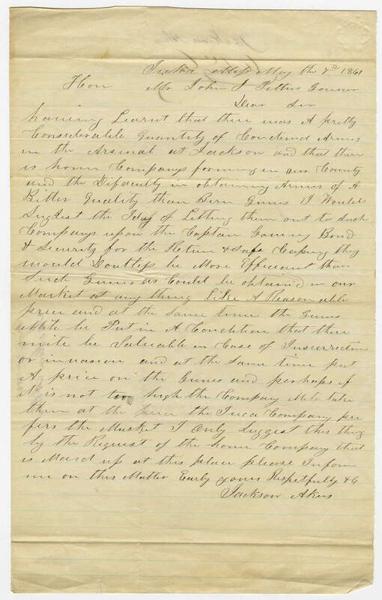 Iuka Miss May the 7th 1861
Hon Mr John J Pettus Governor
Dear Sir
having Learnt that there was A pretty
Considerable Quantity of Condemd Arms
in the Arsenal at Jackson and that there
is home Companys forming in our County
and the Dificulty in obtaining Armes of A
Better Quality than Bern Guns I Would
Sugjest the Iday of Letting them out to Such
Companys upon the Captain Giveing Bond
& Security for the Return & Safe Keeping they
would Doutless be More Efficient than
Such Guns as Could be obtained in our
Market at any thing Like A Reasonable
price and at the Same time the Guns
Might be Put in A Condition that they
mite be Valueable in Case of Insurrection
or invasion and at the Same time put
A price on the Guns and perhaps if
it is not too high the Company Might take
them at the price the Iuca Company pre
fers the Musket I Only Sugjest this thing
by the Request of the home Company that
is Maid up at this place please Inform
me on this Matter Early yours Respetfully &C
Jackson Akers